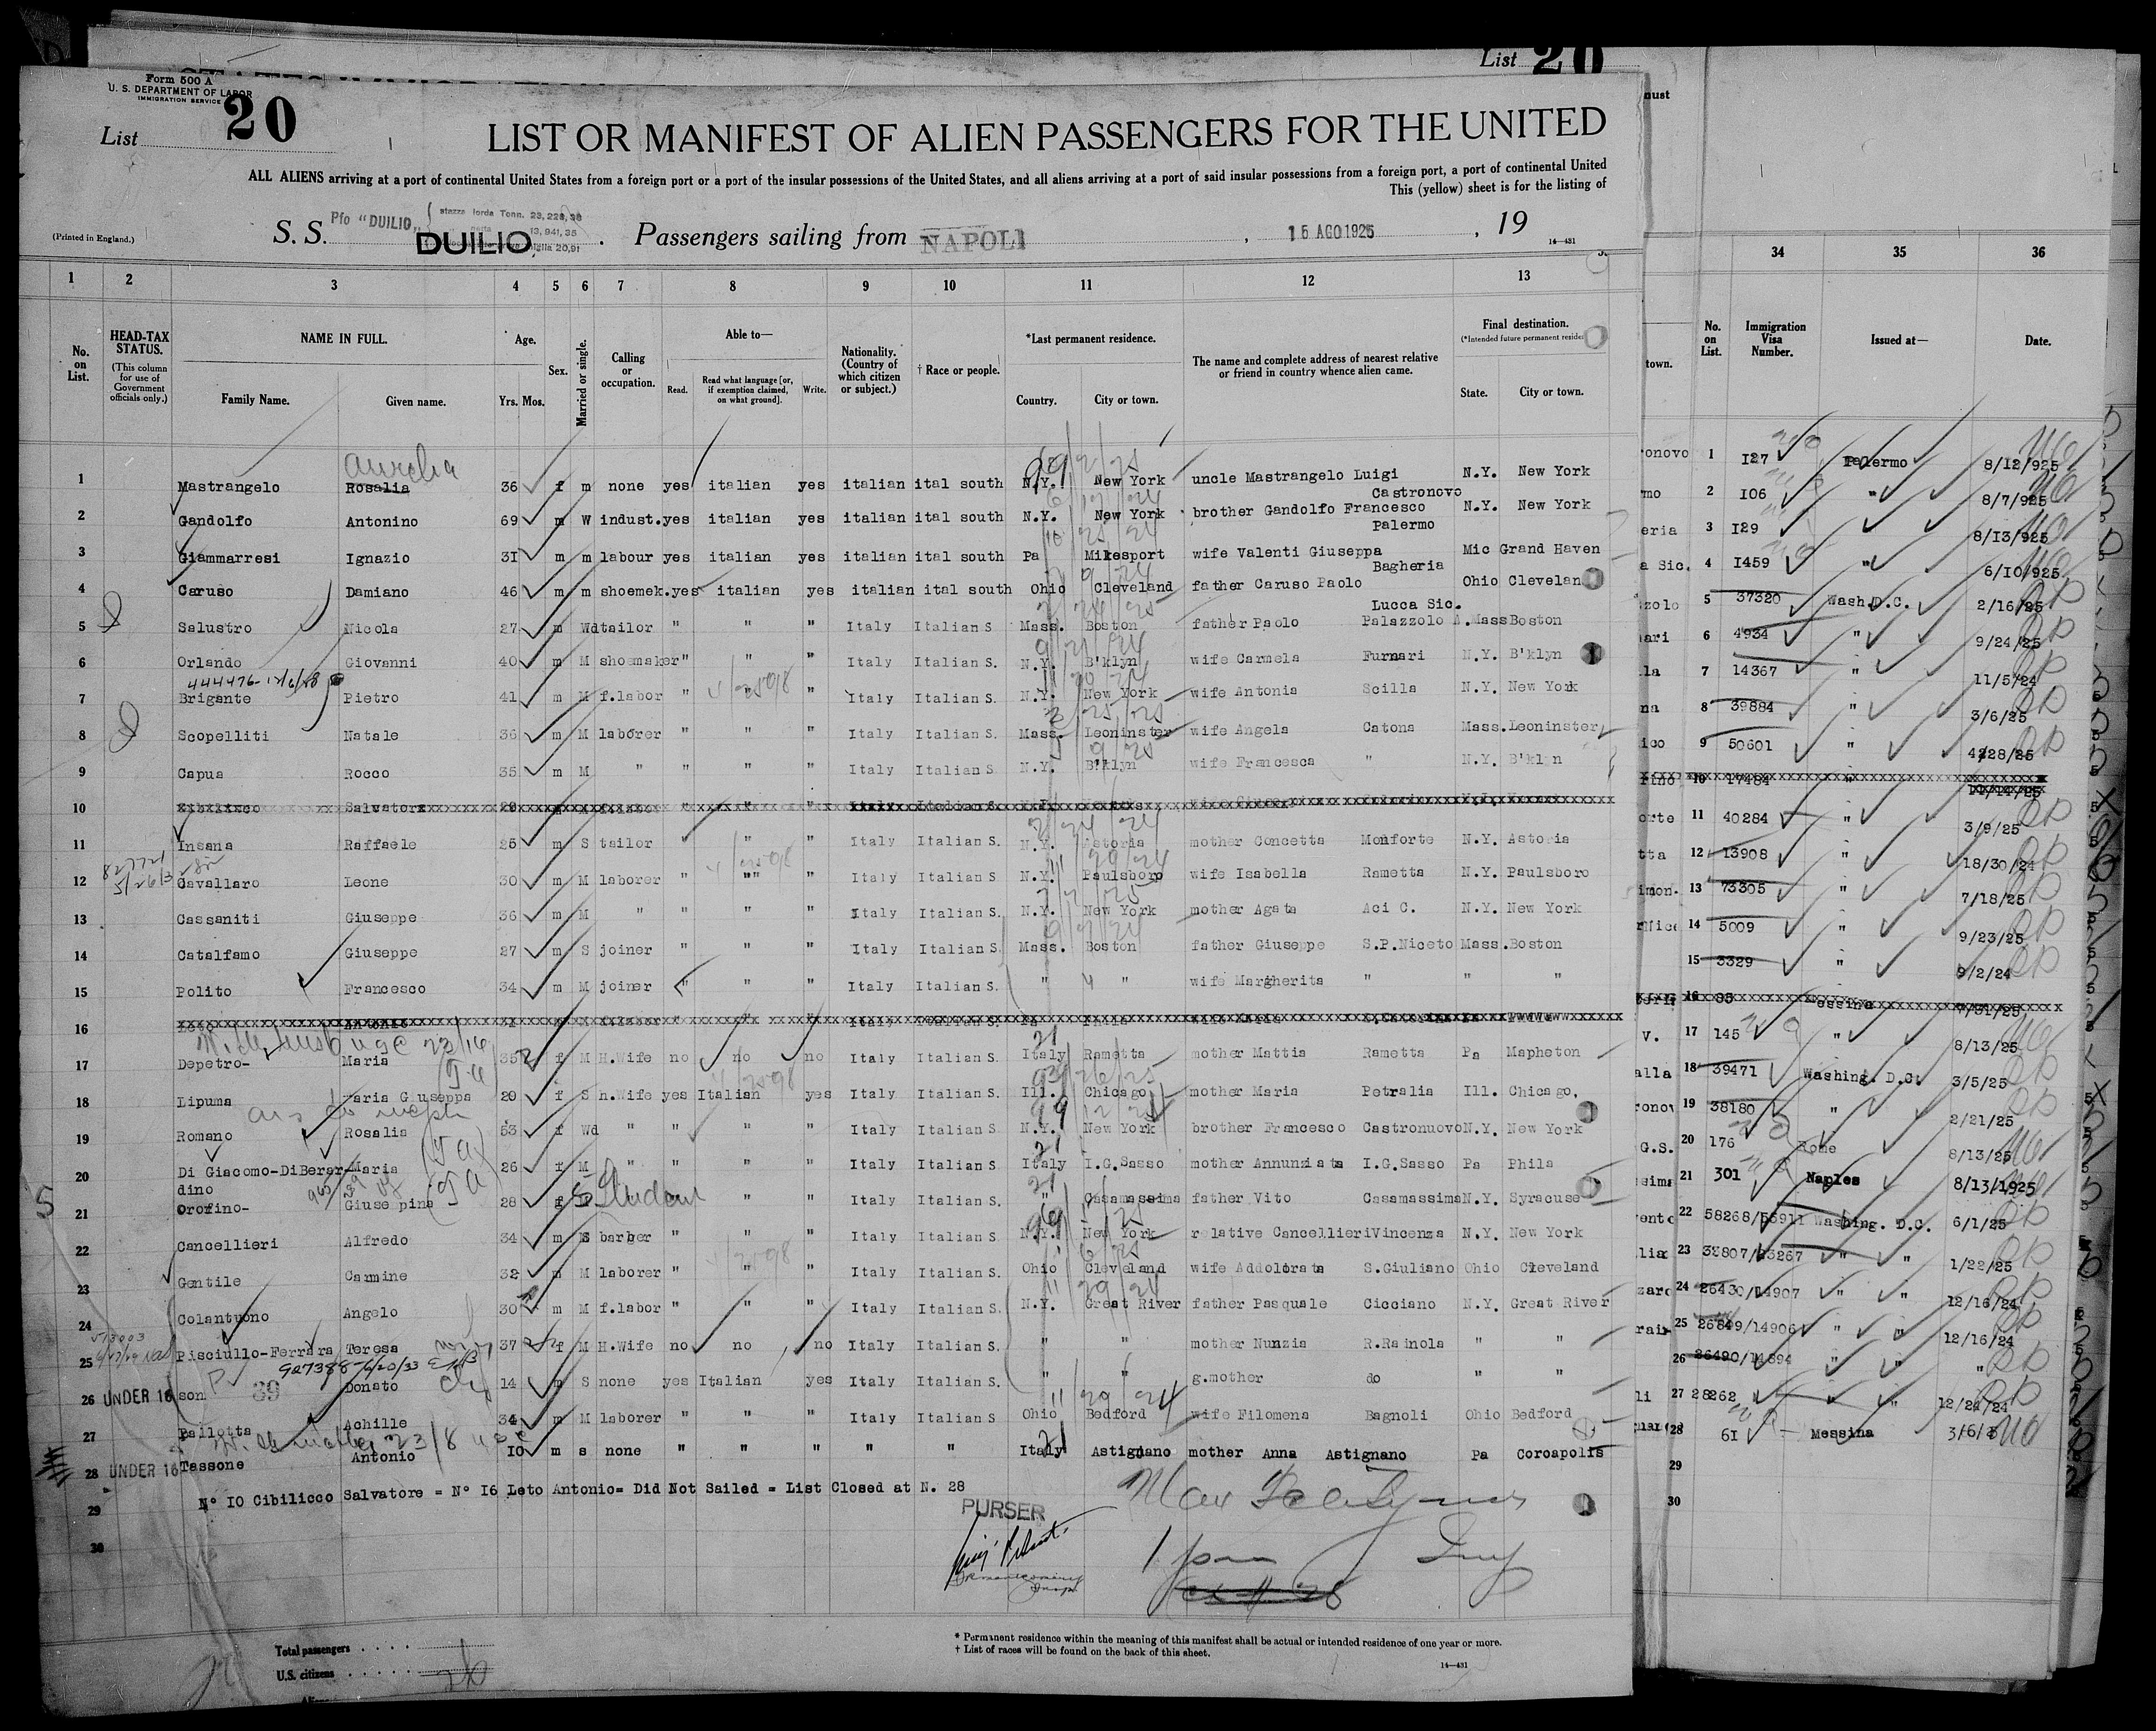 List 20
Form 500 A
U. S. DEPARTMENT OF LABOR
IMMIGRATION SERVICE
List 20
LIST OR MANIFEST OF ALIEN PASSENGERS FOR THE UNITED
ALL ALIENS arriving at a port of continental United States from a foreign port or a port of the insular possessions of the United States, and all aliens arriving at a port of said insular possessions from a foreign port, a port of continental United
This (yellow) sheet is for the listing of
(Printed in England.)
S. S. Pfo "DUILIO" DUILIO. Passengers sailing from NAPOLI, 15 AGO 1925, 19
14—431
1 2 3 4 5 6 7 8 9 10 11 12 13 34 35 36
No. on List.
HEAD-TAX STATUS.
(This column for use of Government officials only.)
NAME IN FULL.
Family Name. Given name.
Age.
Yrs. Mos.
Sex.
Married or single.
Calling or occupation.
Able to—
Read. Read what language [or, if exemption claimed, on what ground]. Write.
Nationality. (Country of which citizen or subject.)
† Race or people.
*Last permanent residence.
Country. City or town.
The name and complete address of nearest relative or friend in country whence alien came.
Final destination.
(*Intended future permanent
State. City or town.
town.
No. on List.
Immigration Visa Number.
Issued at—
Date.
Aurelia
1 Mastrangelo Rosalia 36 f m none yes italian yes italian ital south N.Y. New York uncle Mastrangelo Luigi Castronovo N.Y. New York 1 I27 Palermo 8/12/925
2 Gandolfo Antonino 69 m W indust. yes italian yes italian ital south N.Y. New York brother Gandolfo Francesco Palermo N.Y. New York 2 I06 " 8/7/925
3 Giammarresi Ignazio 3I m m labour yes italian yes italian ital south Pa Mikesport wife Valenti Giuseppa Bagheria Mic Grand Haven 3 I29 " 8/13/925
4 Caruso Damiano 46 m m shoemek. yes italian yes italian ital south Ohio Cleveland father Caruso Paolo Lucca Sic. Ohio Clevelan 4 I459 " 6/10/925
5 Salustro Nicola 27 m Wd tailor " " " Italy Italian S. Mass. Boston father Paolo Palazzolo A. Mass Boston 5 37320 Wash.D.C. 2/16/25
6 Orlando Giovanni 40 m M shoemaker " " " Italy Italian S. N.Y. B'klyn wife Carmela Furnari N.Y. B'klyn 6 4934 " 9/24/25
444476-
7 Brigante Pietro 41 m M f.labor " " " Italy Italian S. N.Y. New York wife Antonia Scilla N.Y. New York 7 14367 " 11/5/24
8 Scopelliti Natale 36 m M laborer " " " Italy Italian S. Mass. Leoninster wife Angela Catona Mass. Leoninster 8 39884 " 3/6/25
9 Capua Rocco 35 m M " " " " Italy Italian S N.Y. B'klyn wife Francesca " N.Y. B'klyn 9 50601 " 4/28/25
10 Salvatore " " " Italy Italian S. 10 17484 "
11 Insana Raffaele 25 m S tailor " " " Italy Italian S. N.Y. Astoria mother Concetta Monforte N.Y. Astoria 11 40284 " 3/9/25
12 Cavallaro Leone 30 m M laborer " " " Italy Italian S N.Y. Paulsboro wife Isabella Rametta N.Y. Paulsboro 12 13908 " 18/30/24
13 Cassaniti Giuseppe 36 m M " " " " Italy Italian S. N.Y. New York mother Agata Aci C. N.Y. New York 13 73305 " 7/18/25
14 Catalfamo Giuseppe 27 m S joiner " " " Italy Italian S. Mass. Boston father Giuseppe S.P.Niceto Mass. Boston 14 5009 " 9/23/25
15 Polito Francesco 34 m M joiner " " " Italy Italian S. " " wife Margherita " " " 15 3329 " 9/2/24
16 Antonio Italy 16 85 Messina 7/31/25
17 Depetro- Maria 35 f M H.Wife no no no Italy Italian S. Italy Rametta mother Mattia Rametta Pa Mapheton 17 145 " 8/13/25
18 Lipuma Maria Giuseppa 20 f S h.Wife yes Italian yes Italy Italian S. Ill. Chicago, mother Maria Petralia Ill. Chicago, 18 39471 Washing. D.C. 3/5/25
19 Romano Rosalia 53 f Wd " " " " Italy Italian S. N.Y. New York brother Francesco Castronuovo N.Y. New York 19 38180 " 2/21/25
20 Di Giacomo-DiBerardino Maria 26 f M " " " " Italy Italian S. Italy I.G.Sasso mother Annunziata I.G.Sasso Pa Phila 20 176 Rome 8/13/25
21 Orofino- Giuseppina 28 f S Student " " Italy Italian S. " Casamassima father Vito Casamassima N.Y. Syracuse 21 301 Naples 8/13/1925
22 Cancellieri Alfredo 34 m S barber " " " Italy Italian S. N.Y. New York relative Cancellieri Vincenza N.Y. New York 22 58268/55911 Washing. D.C. 6/1/25
23 Gentile Carmine 32 m M laborer " " " Italy Italian S. Ohio Cleveland wife Addolorata S.Giuliano Ohio Cleveland 23 32807/33267 " " 1/22/25
24 Colantuono Angelo 30 m M f.labor " " " Italy Italian S. N.Y. Great River father Pasquale Cicciano N.Y. Great River 24 26430/14907 " " 12/16/24
25 Pisciullo-Ferrara Teresa 37 f M H.Wife no no no Italy Italian S. " " mother Nunzia R.Rainola " " 25 26849/14906 " " 12/16/24
927388-6/20/33
26 UNDER 16 son 39 Donato 14 m S none yes Italian yes Italy Italian S. " " g.mother do " " 26 26490/14894 " " "
27 Pallotta Achille 34 m M laborer " " " Italy Italian S Ohio Bedford wife Filomena Bagnoli Ohio Bedford 27 28262 " " 12/24/24
28 UNDER 16 Tassone Antonio IO m s none " " " " " Italy Astignano mother Anna Astignano Pa Coroapolis 28 6I Messina 3/6/
29 N° IO Cibilicco Salvatore = N° I6 Leto Antonio= Did Not Sailed = List Closed at N. 28 29
30 30
PURSER
Total passengers
U.S. citizens
* Permanent residence within the meaning of this manifest shall be actual or intended residence of one year or more.
† List of races will be found on the back of this sheet.
14—431